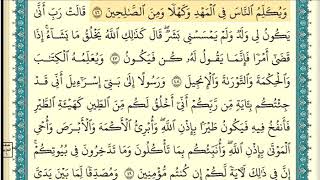 وَيُكَلِّمُ ٱلنَّاسَ فِى ٱلْمَهْدِ وَكَهْلًا وَمِنَ ٱلصَّٰلِحِينَ ٤٦ قَالَتْ رَبِّ أَنَّىٰ
يَكُونُ لِى وَلَدٌ وَلَمْ يَمْسَسْنِى بَشَرٌ ۖ قَالَ كَذَٰلِكِ ٱللَّهُ يَخْلُقُ مَا يَشَآءُ ۚ إِذَا
قَضَىٰٓ أَمْرًا فَإِنَّمَا يَقُولُ لَهُۥ كُن فَيَكُونُ ٤٧ وَيُعَلِّمُهُ ٱلْكِتَٰبَ
وَٱلْحِكْمَةَ وَٱلتَّوْرَىٰةَ وَٱلْإِنجِيلَ ٤٨ وَرَسُولًا إِلَىٰ بَنِىٓ إِسْرَٰٓءِيلَ أَنِّى قَدْ
جِئْتُكُم بِـَٔايَةٍ مِّن رَّبِّكُمْ ۖ أَنِّىٓ أَخْلُقُ لَكُم مِّنَ ٱلطِّينِ كَهَيْـَٔةِ ٱلطَّيْرِ
فَأَنفُخُ فِيهِ فَيَكُونُ طَيْرًۢا بِإِذْنِ ٱللَّهِ ۖ وَأُبْرِئُ ٱلْأَكْمَهَ وَٱلْأَبْرَصَ وَأُحْىِ
ٱلْمَوْتَىٰ بِإِذْنِ ٱللَّهِ ۖ وَأُنَبِّئُكُم بِمَا تَأْكُلُونَ وَمَا تَدَّخِرُونَ فِى بُيُوتِكُمْ ۚ
إِنَّ فِى ذَٰلِكَ لَـَٔايَةً لَّكُمْ إِن كُنتُم مُّؤْمِنِينَ ٤٩ وَمُصَدِّقًا لِّمَا بَيْنَ يَدَىَّ